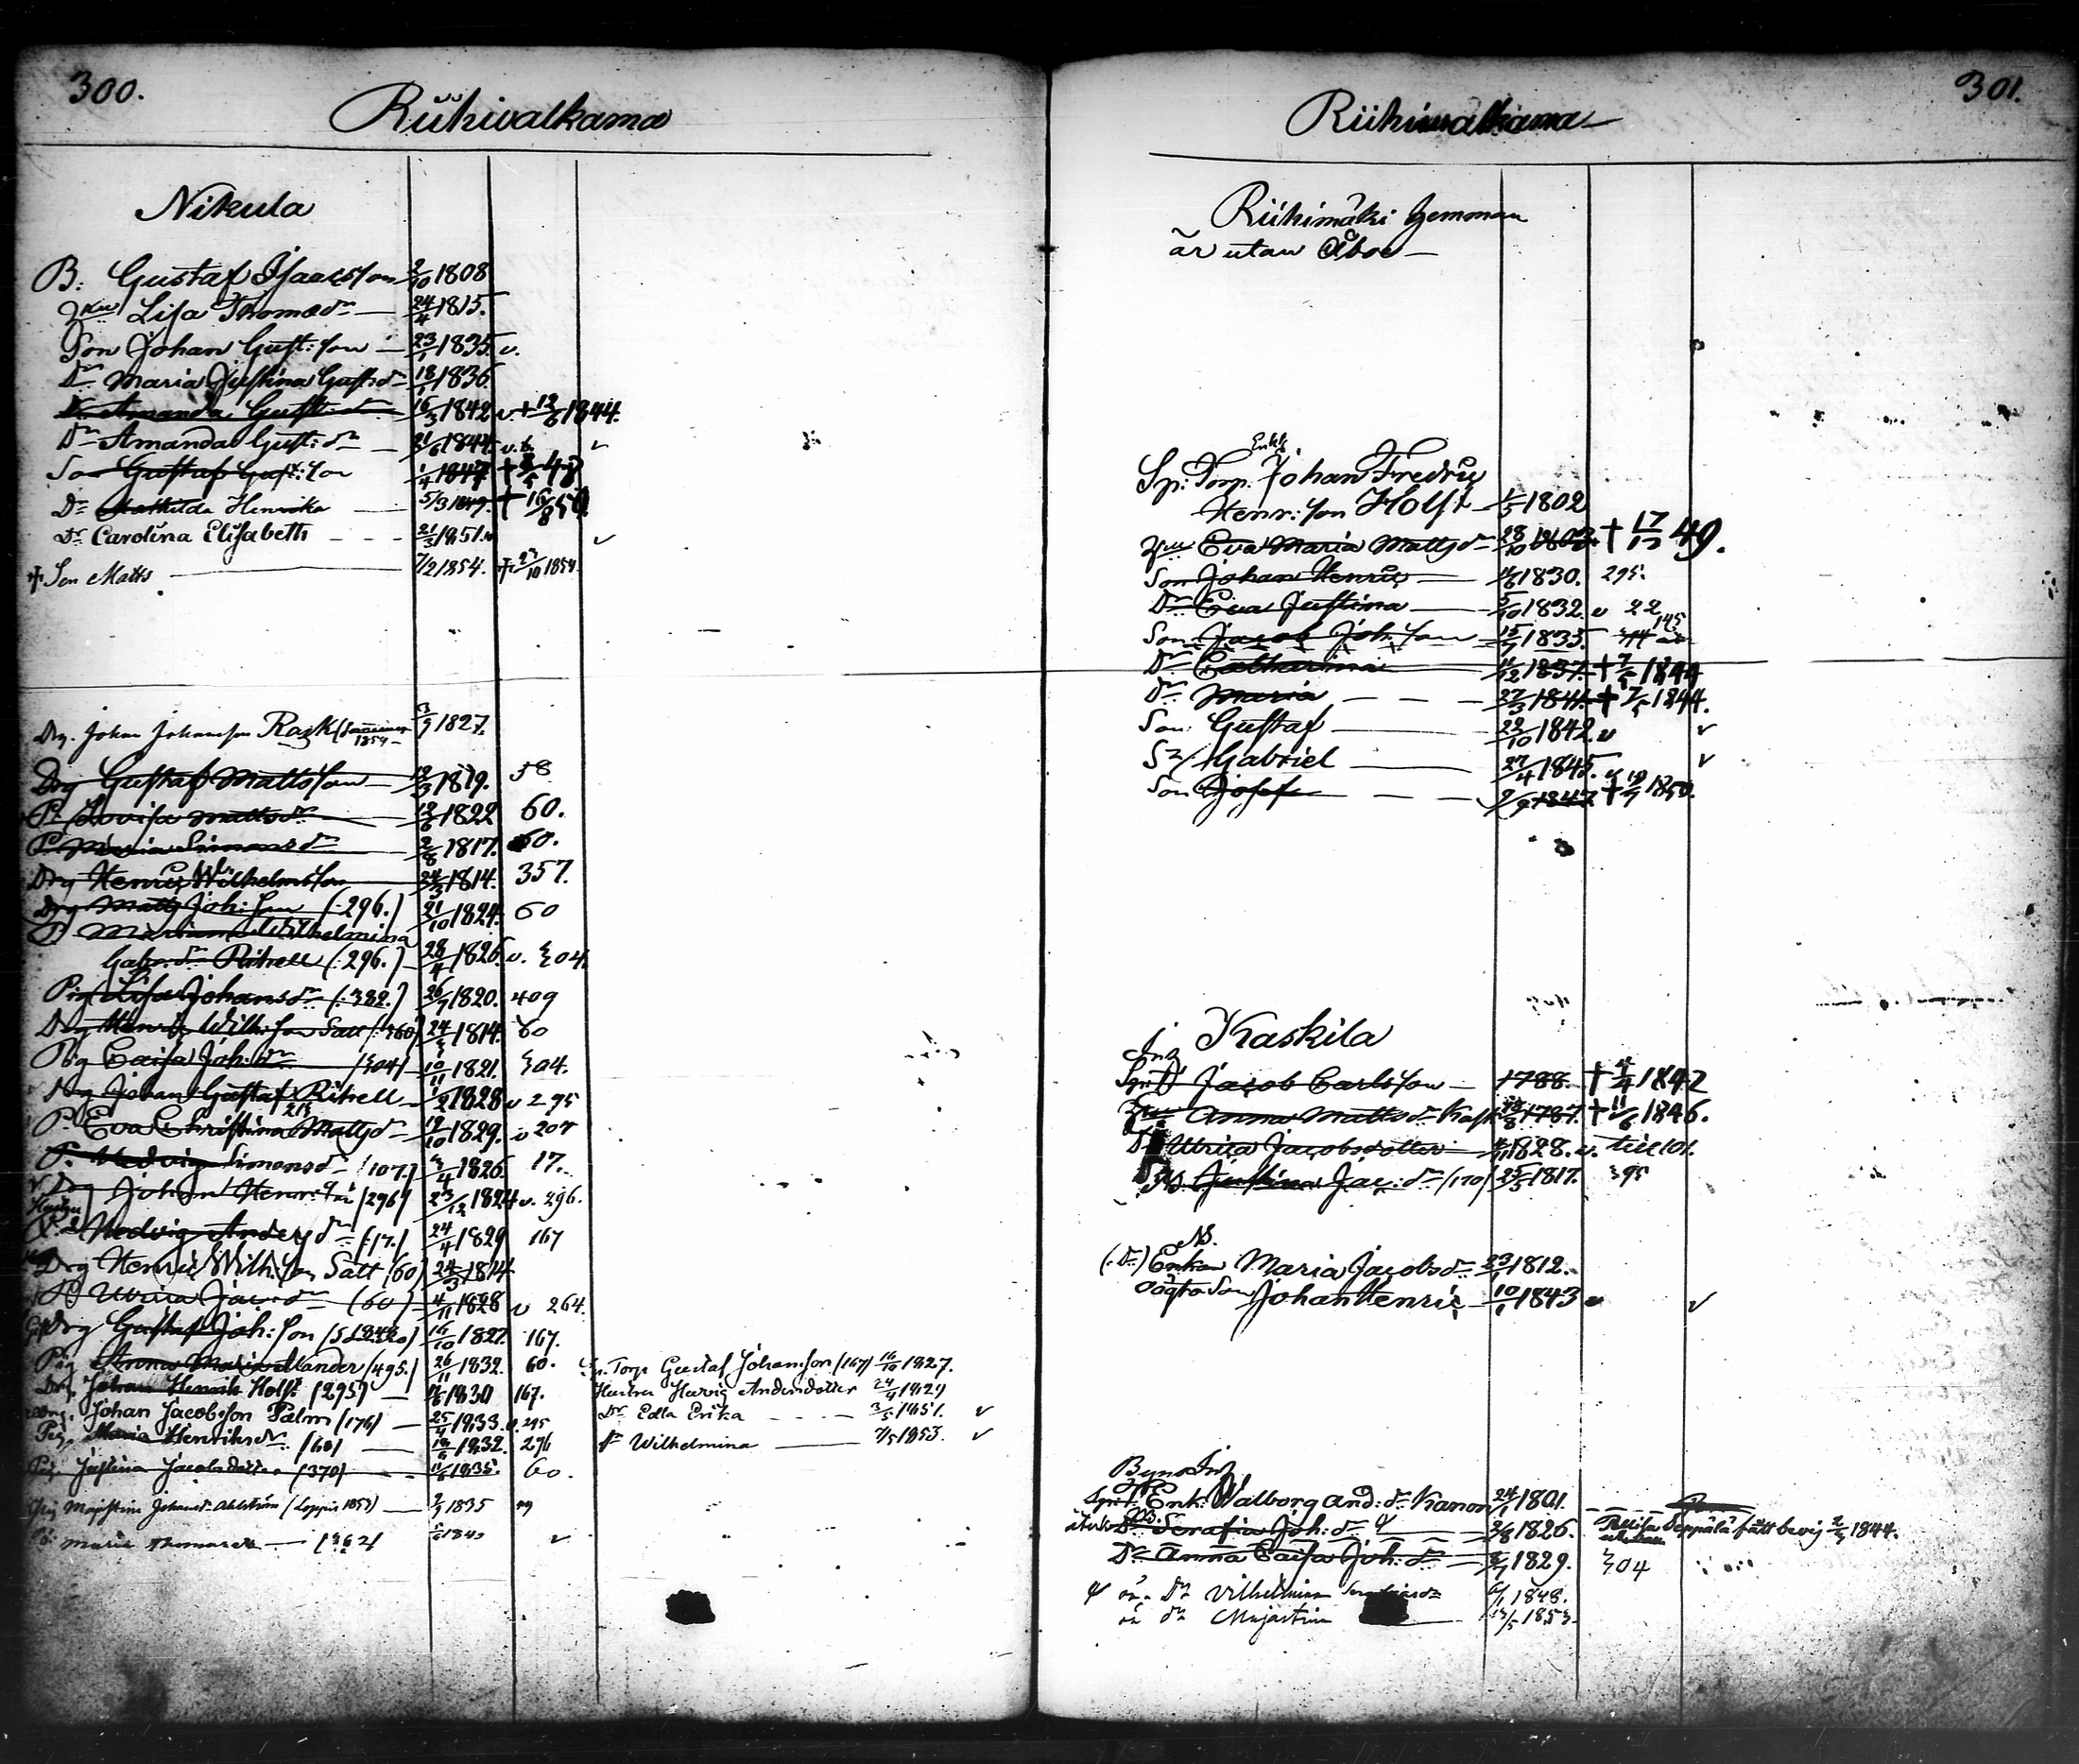 300.
Riihivalkama
Nikula
B: Gustaf Isaacsson 2/10 1808
Hu Lisa Thomædr 24/4 1815.
Son Johan Gust: son 23/1 1835. v.
Dr Maria Justina Gustsdr 18/1 1836.
Dr Amanda Gust: dr 16/3 1842 v + 12/6 1844.
Dr Amanda Gust: dr 21/6 1844. v.
Son Gustaf Gust: son 1/4 1847 +
Dr Mathilda Henrika 5/9 1849. + 16/8 50.
Dr Carolina Elisabeth 21/3 1851. v
+ Son Matts 7/2 1854. + 27/10 1854.
Drg. Johan Johansson Rask 1827.
Drg Gustaf Mattsson 1819. 58
P. Lovisa Mattsdr 12/6 1822 60.
P. Maria Simonsdr 2/8 1817. 60.
Drg Henric Wilhelmsson 24/3 1814. 357.
Drg Matts Joh: Son (296.) 21/10 1824. 60
P Mariana Wilhelmina
Gabr: dr Ritzell (296.) 28/4 1826. v. 304.
Pig Lisa Johansdr (382.) 26/7 1820. 409
Drg Henric Wilh: son Sätt (360) 24/3 1814. 60
Pig Caisa Joh: dr (304) 10/11 1821. 304.
Drg Johan Gustaf Ritzell 1/2 1828 v 295
213
P. Eva Christina Mattsdr 12/10 1829. v 207
P. Hedvig Simonsdr (107.) 4/4 1826. 17.
Drg Johan Henr: son (296) 23/12 1824 v. 296.
Hustru
P. Hedvig Andersdr (17.) 24/4 1829 167
Drg Henric Wilh: son Sätt (60) 24/3 1814
P Ulrica Jac: dr (60) 4/11 1828 v 264.
Drg Gustaf Joh: Son 16/10 1827. 167.
Pig Anna Maria Mander (495.) 26/11 1832. 60.
Drg. Johan Henrik Holst (295) 1830 167.
Drg. Johan Jacobsson Palm (176) 25/4 1833. v. 295
Pig. Maria Henriksdr (60) 1832. 296
Pig. Justina Jacobsdotter (370) 1835. 60.
Pig Majastina Johansdr Ahlström (Loppis 1853) 1835
P. Maria Thomasdr 1840
Sp. Torp. Gustaf Johansson (167) 16/10 1827.
Hustru Hedvig Andersdotter 24/4 1829
Dr Edla Erika 3/5 1851. v
Dr Wilhelmina 7/5 1853. v
301.
Riihivalkama
Riihimäki hemman
är utan Åboe
Enkl.
Sp: Torp. Johan Fredric
Henr: son Holst 1/5 1802
Hu Eva Maria Mattsdr 28/10 1803. + 17/12 49.
Son Johan Henric 1830. 295.
Dr Eva Justina 5/10 1832. v 22
Son Jacob Joh: Son 15/7 1835. 145
Dr Catharina 11/12 1837. + 7/5 1844
Dr Maria 27/3 1841. + 7/5 1844.
Son Gustaf 22/10 1842. v v
Son Gabriel 27/4 1845. v v
Son Josef 9/9 1847. + 19/7 1850.
Kaskila
Inh
Jacob Carlsson 1788. + 4/4 1842
Hu Anna Mattsdr Kask 1787. + 11/6 1846.
Dr Ulrica Jacobsdotter 4/11 1828. v. till 101.
Dr. Justina Jac: dr (170) 25/5 1817. 395
NB.
(Dr) Enkan Maria Jacobsdr 23/1 1812.
oägta Son Johan Henric 10/1 1843 v v
Byns Inh
Enk: Walborg And: dr Kanon 24/1 1801.
Dr Serafia Joh: dr 1826. Seppälä fått bevis 2/3 1844.
Dr Anna Caisa Joh: dr 1829. 304
oä. Dr Vilhelmina 6/1 1848.
oä dr Majastina 1853.